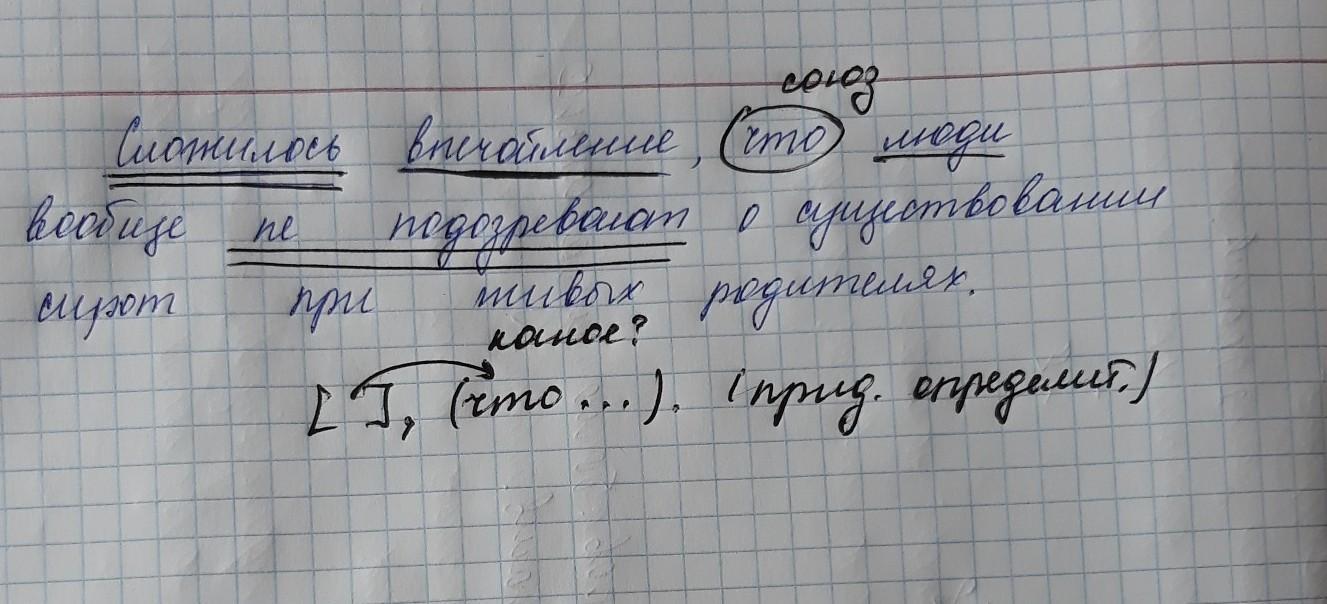 союз
Сложилось впечатление, что люди
вообще не подозревают о существовании
сирот при живых родителях.
какое?
[ ], (что ...). (прид. определит.)